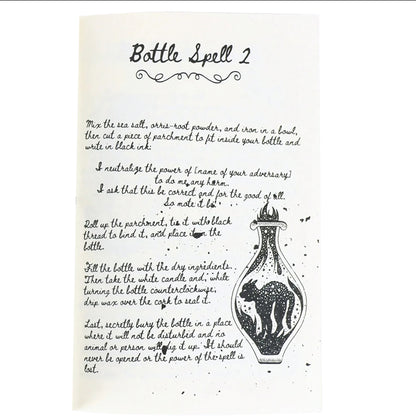 Bottle Spell 2
Mix the sea salt, orris-root powder, and iron in a bowl,
then cut a piece of parchment to fit inside your bottle and
write in black ink:
I neutralize the power of [name of your adversary]
to do me any harm.
I ask that this be correct and for the good of all.
So mote it be.
Roll up the parchment, tie it with black
thread to bind it, and place it in the
bottle.
Fill the bottle with the dry ingredients.
Then take the white candle and, while
turning the bottle counterclockwise,
drip wax over the cork to seal it.
Last, secretly bury the bottle in a place
where it will not be disturbed and no
animal or person will dig it up. It should
never be opened or the power of the spell is
lost.